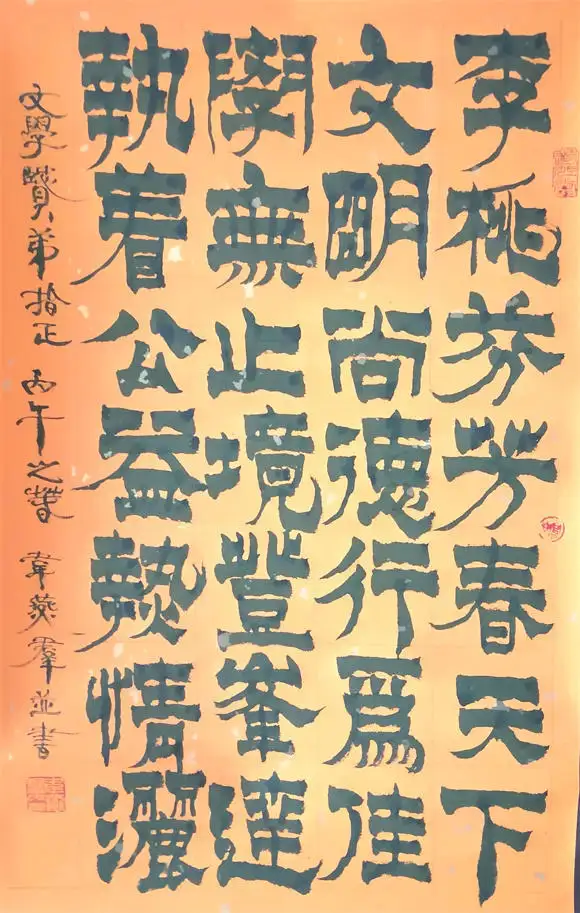 李桃芬芳春天下
文明尚德行爲佳
學無止境登峯達
執着公益熱情灑
文學賢弟指正 丙午之春 韋燕羣並書